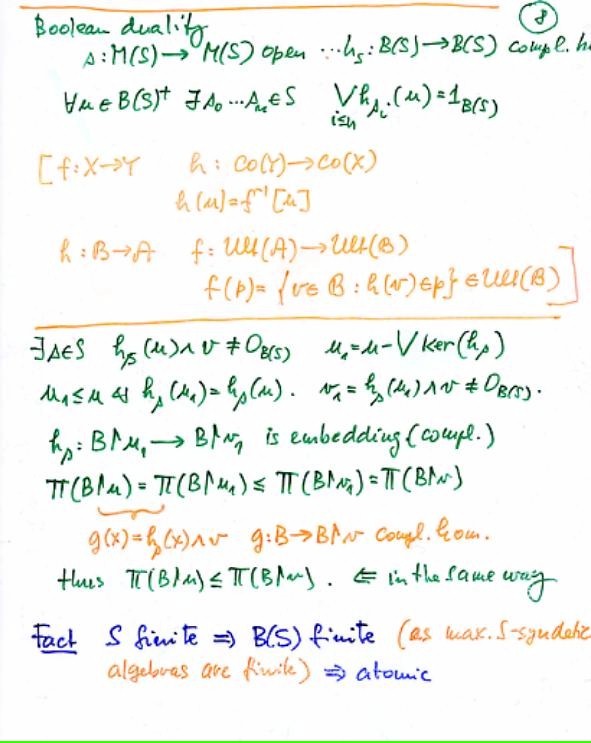 8
Boolean duality
s : M(S) → M(S) open ... h_s : B(S) → B(S) compl. h
∀u ∈ B(S)⁺ ∃ s₀ ... sₙ ∈ S ⋁_{i≤n} h_{s_i}(u) = 1_{B(S)}
[ f : X → Y h : CO(Y) → CO(X)
h(u) = f⁻¹[u]
h : B → A f : Ult(A) → Ult(B)
f(p) = {v ∈ B : h(v) ∈ p} ∈ Ult(B) ]
∃s∈S h_s(u) ∧ v ≠ 0_{B(S)} u₁ = u − ⋁ ker(h_s)
u₁ ≤ u & h_s(u₁) = h_s(u). v₁ = h_s(u₁) ∧ v ≠ 0_{B(S)}.
h_s : B↾u₁ → B↾v₁ is embedding (compl.)
π(B↾u) = π(B↾u₁) ≤ π(B↾v₁) = π(B↾v)
g(x) = h_s(x) ∧ v g : B → B↾v compl. hom.
thus π(B↾u) ≤ π(B↾v). ⇐ in the same way
Fact S finite ⇒ B(S) finite (as max. S-syndetic
algebras are finite) ⇒ atomic